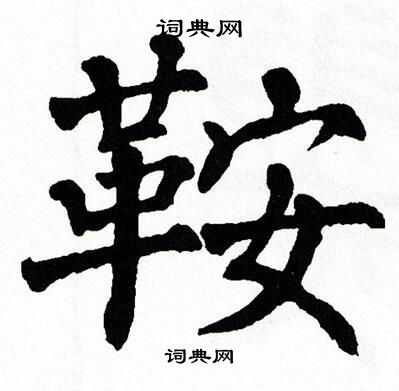 词典网
鞍
词典网